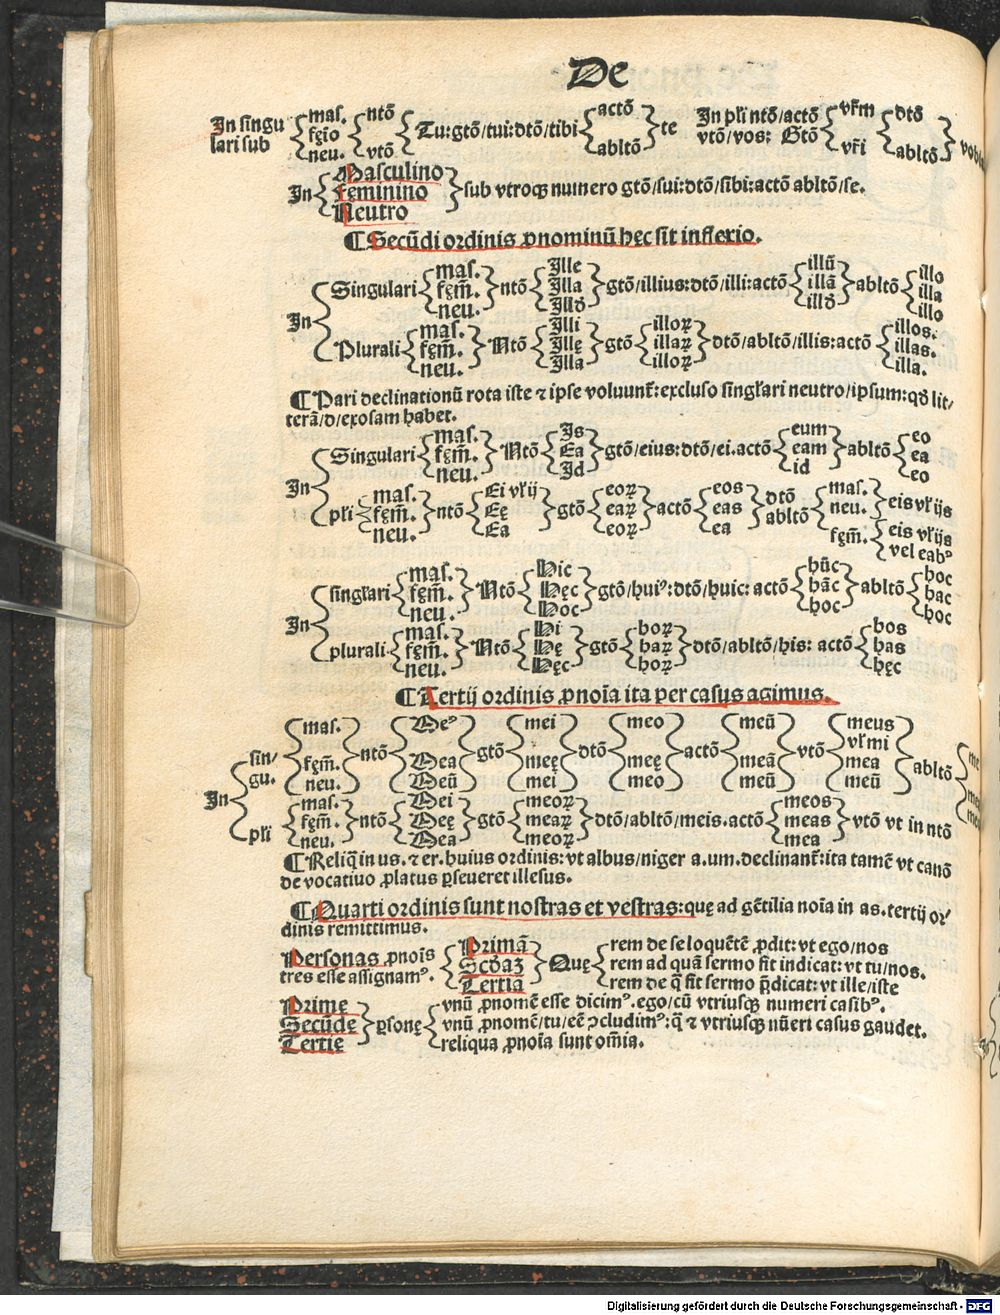 De
In singu mas. ntō Tu: gtō/tui: dtō/tibi actō te In pľi ntō/actō vr̄m dtō
lari sub fęīo vtō abltō vtō/vos: Gtō vr̄i abltō
neu.
Masculino
In Feminino sub vtroqꝫ numero gtō/sui: dtō/sibi: actō abltō/se.
Neutro
¶ Secūdi ordinis ꝓnominū hęc sit inflexio.
mas. Ille illū illo
Singulari fęm̄. ntō Illa gtō/illius: dtō/illi: actō illā abltō illa
neu. Illđ illđ illo
In
mas. Illi illoꝝ illos.
Plurali fęm̄. Ntō Illę gtō illaꝝ dtō/abltō/illis: actō illas.
neu. Illa illoꝝ illa.
¶ Pari declinationū rota iste ⁊ ipse voluunt̄: excluso singľari neutro/ipsum: qđ lit/
terā/d/exosam habet.
mas. Is eum eo
Singulari fęm̄. Ntō Ea gtō/eius: dtō/ei. actō eam abltō ea
neu. Id id eo
In
mas. Ei vľ ij eoꝝ eos dtō mas. eis vľ ijs
pľi fęm̄. ntō Eę gtō eaꝝ actō eas abltō neu.
neu. Ea eoꝝ ea fęm̄. eis vľ ijs
vel eabꝰ
mas. Hic hūc hoc
singľari fęm̄. Ntō Hęc gtō/huiꝰ: dtō/huic: actō hāc abltō hac
neu. Hoc hoc hoc
In
mas. Hi hoꝝ hos
plurali fęm̄. Ntō Hę gtō haꝝ dtō/abltō/his: actō has
neu. Hęc hoꝝ hęc
¶ Tertij ordinis ꝓnoīa ita per casus agimus.
mas. Meꝰ mei meo meū meus
sin/ vľ mi
gu. fęm̄. ntō Mea gtō meę dtō meę actō meā vtō mea abltō
neu. Meū mei meo meū meū
In
mas. Mei meoꝝ meos
pľi fęm̄. ntō Meę gtō meaꝝ dtō/abltō/meis. actō meas vtō vt in ntō
neu. Mea meoꝝ mea
¶ Reliq̄ in us. ⁊ er. huius ordinis: vt albus/niger a. um. declinant̄: ita tamē vt canō
de vocatiuo ꝓlatus ꝑseueret illesus.
¶ Quarti ordinis sunt nostras et vestras: quę ad gētilia noīa in as. tertij or/
dinis remittimus.
Personas ꝓnoīs Primā rem de se loquētē ꝓdit: vt ego/nos
tres esse assignamꝰ. Scđaꝫ Quę rem ad quā sermo fit indicat: vt tu/nos.
Tertiā rem de q̄ fit sermo p̄dicat: vt ille/iste
Prime vnū ꝓnomē esse dicimꝰ. ego/cū vtriusqꝫ numeri casibꝰ.
Secūde ꝑsonę vnū ꝓnomē/tu/eē ↄcludimꝰ: q̄ ⁊ vtriusqꝫ nūeri casus gaudet.
Tertię reliqua ꝓnoīa sunt om̄ia.
Digitalisierung gefördert durch die Deutsche Forschungsgemeinschaft - DFG